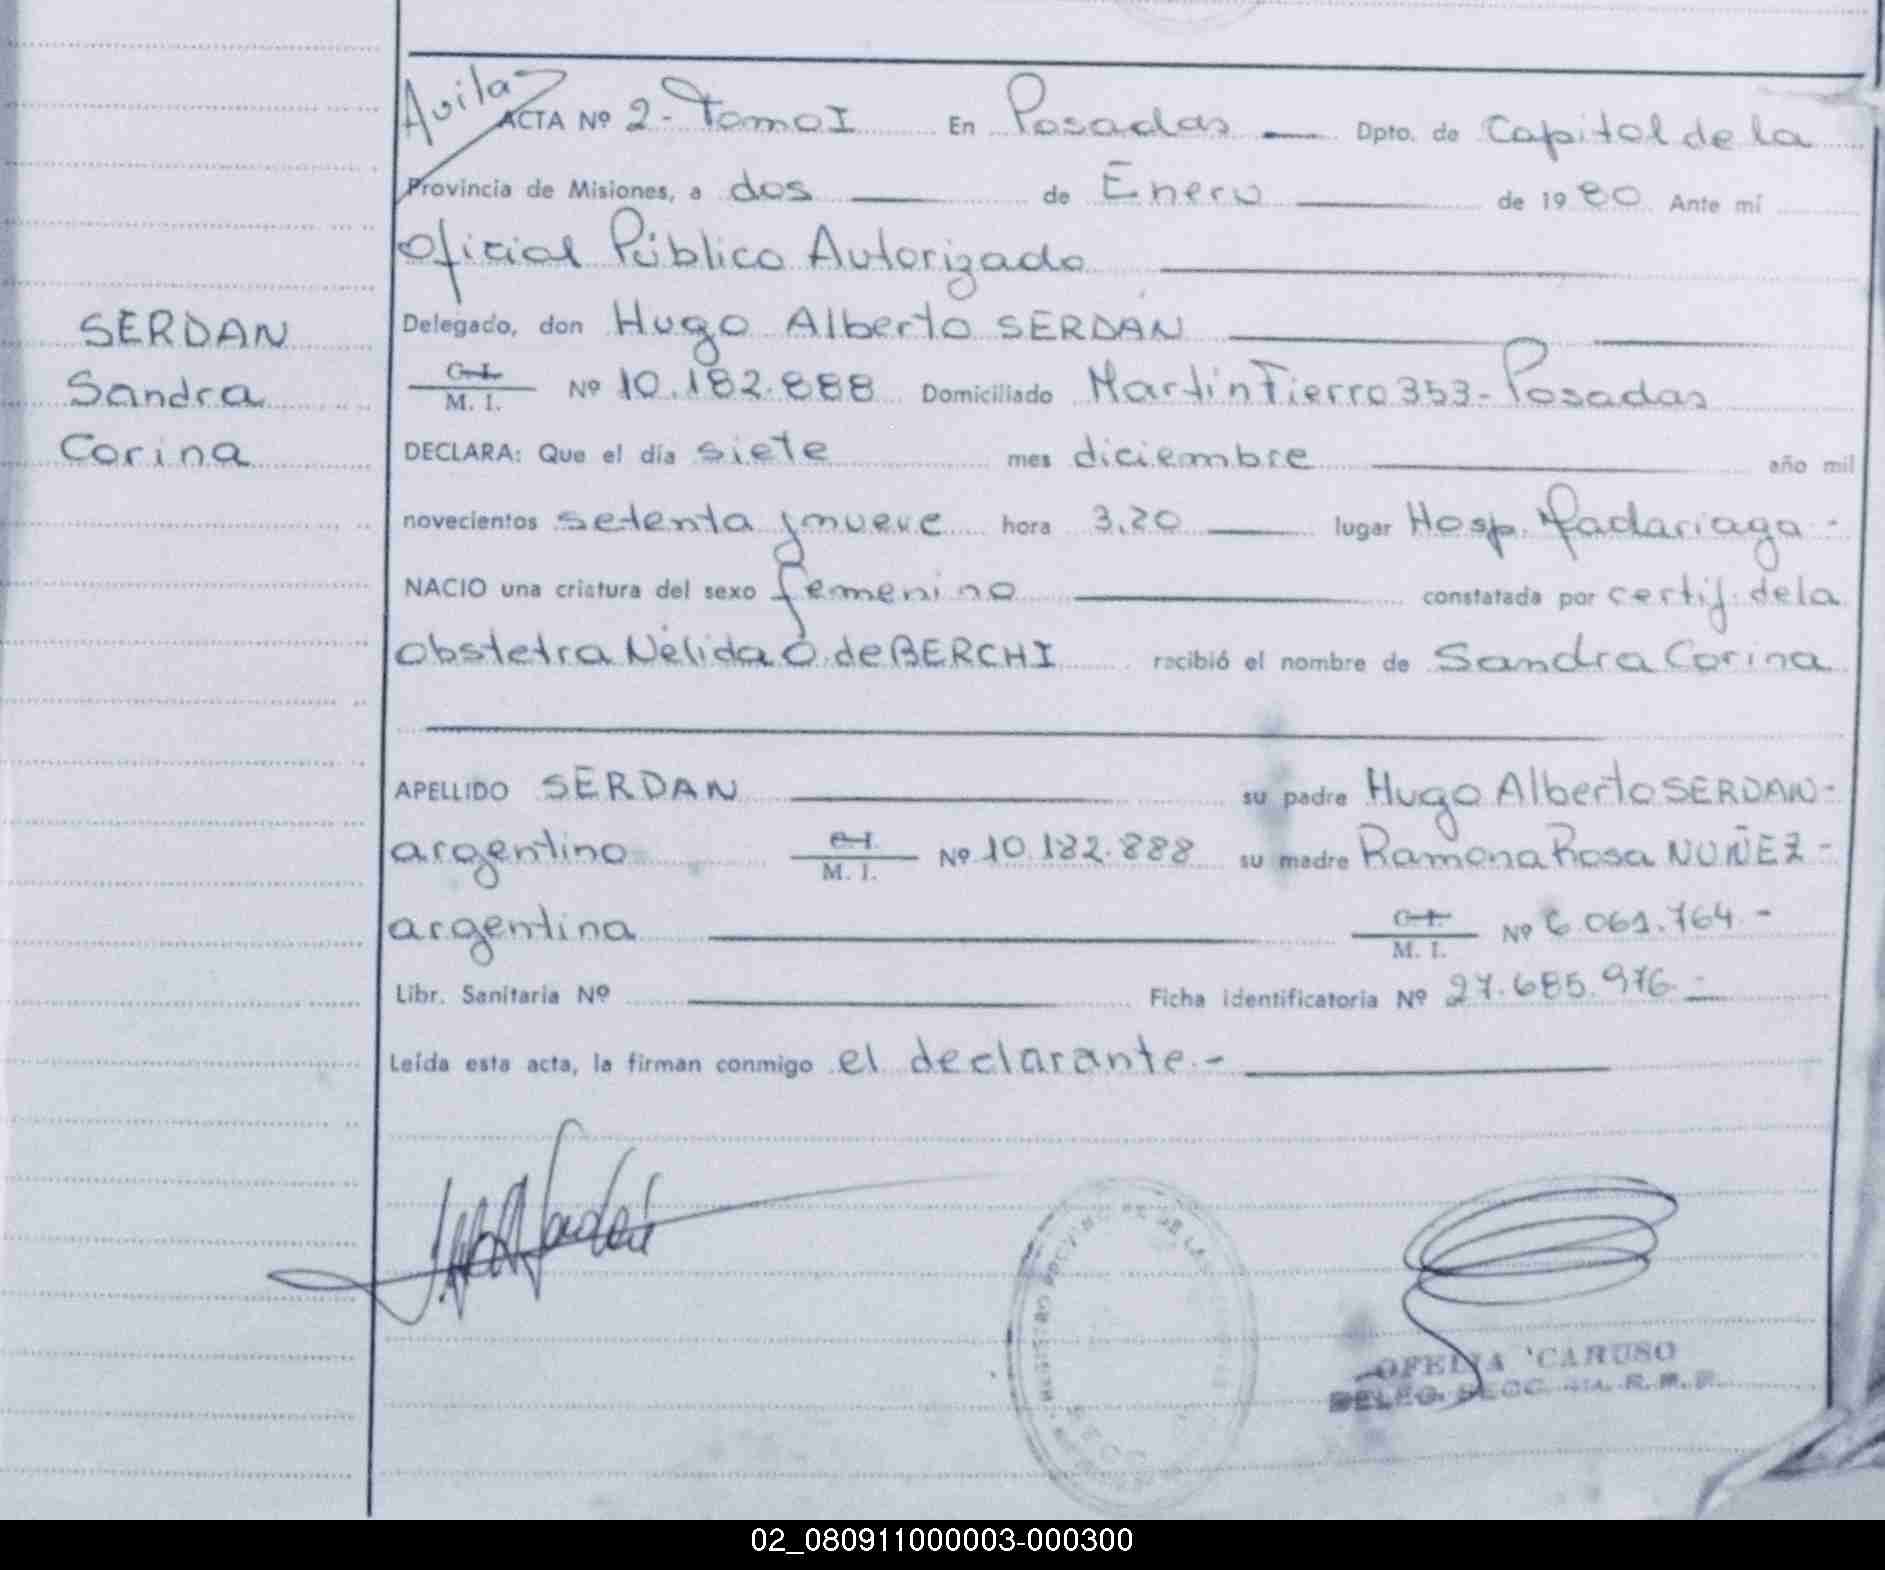 Avila
ACTA Nº 2 - Tomo I En Posadas Dpto. de Capital de la
Provincia de Misiones, a dos de Enero de 1980 Ante mí
Oficial Público Autorizado
Delegado, don Hugo Alberto SERDAN
SERDAN
Sandra
Corina
C. I.
M. I. Nº 10.182.888 Domiciliado Martin Fierro 353 - Posadas
DECLARA: Que el día siete mes diciembre año mil
novecientos setenta y nueve hora 3,20 lugar Hosp. Madariaga -
NACIO una criatura del sexo femenino constatada por certif. de la
obstetra Nélida O. de BERCHI recibió el nombre de Sandra Corina
APELLIDO SERDAN su padre Hugo Alberto SERDAN -
argentino C. I. M. I. Nº 10.182.888 su madre Ramona Rosa NUÑEZ -
argentina C. I. M. I. Nº 6.061.764 -
Libr. Sanitaria Nº Ficha identificatoria Nº 27.685.976 -
Leída esta acta, la firman conmigo el declarante. -
OFELIA CARUSO
DELEG. SECC. 4ta. R. P.
02_080911000003-000300